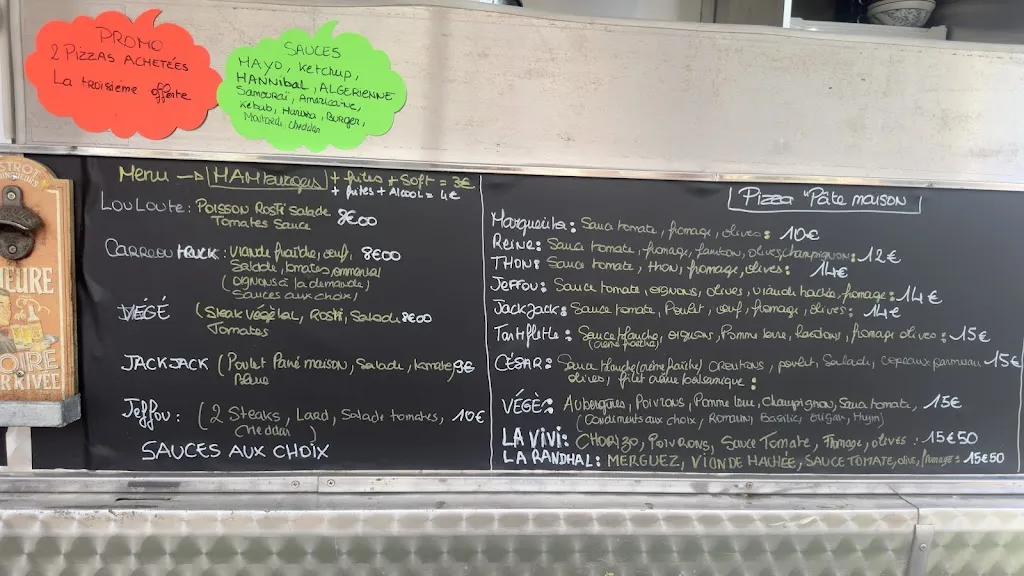 PROMO
2 PIZZAS ACHETÉES
La troisième offerte
SAUCES
MAYO, Ketchup,
HANNibal, ALGERIENNE
Samouraï, Américaine,
Kebab, Harissa, Burger,
Moutarde, cheddar
Menu → HAMburgers + frites + Soft = 3€
+ frites + Alcool = 4€
LOULOUTE: POISSON Rosti Salade 8€00
Tomates Sauce
CARREOU TRUCK: Viande fraîche, oeuf, 8€00
Salade, tomates, emmental
(oignons à la demande)
Sauces aux choix)
VÉGÉ (Steak végétal, Rosti, Salade 8€00
Tomates
JACKJACK (Poulet Pané maison, Salade, tomates, 9€
Jeffou: (2 Steaks, Lard, Salade tomates, 10€
Cheddar)
SAUCES AUX CHOIX
Pizza "Pâte maison
Marguerita: Sauce tomate, fromage, olives: 10€
Reine: Sauce tomate, fromage, jambon, olives, champignon: 12€
THON: Sauce tomate, thon, fromage, olives: 14€
JEFFOU: Sauce tomate, oignons, olives, viande hachée, fromage: 14€
JACKJACK: Sauce tomate, Poulet, oeuf, fromage, olives: 14€
Tartiflette: Sauce blanche, oignons, Pomme terre, lardons, fromage olives: 15€
(crème fraîche)
CÉSAR: Sauce blanche (crème fraîche) croutons, poulet, Salade, copeaux parmesan 15€
olives, filet crème balsamique:
VÉGÉ: Aubergines, Poivrons, Pomme terre, Champignon, Sauce tomate, 15€
(Condiments aux choix, Romarin, Basilic, origan, thym)
LA VIVI: CHORIZO, POIVRONS, Sauce Tomate, Fromage, olives: 15€50
LA RANDHAL: MERGUEZ, VIANDE HACHÉE, SAUCE TOMATE, olive, fromage: 15€50
HEURE